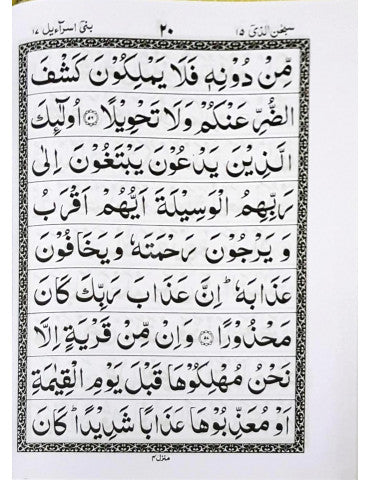 سبحٰن الذی ۱۵ ۲۰ بنیٓ اسرآءیل ۱۷
مِّنْ دُوْنِهٖ فَلَا يَمْلِكُوْنَ كَشْفَ
الضُّرِّ عَنْكُمْ وَلَا تَحْوِيْلًا ۝۵۶ اُولٰٓئِكَ
الَّذِيْنَ يَدْعُوْنَ يَبْتَغُوْنَ اِلٰى
رَبِّهِمُ الْوَسِيْلَةَ اَيُّهُمْ اَقْرَبُ
وَ يَرْجُوْنَ رَحْمَتَهٗ وَ يَخَافُوْنَ
عَذَابَهٗ ؕ اِنَّ عَذَابَ رَبِّكَ كَانَ
مَحْذُوْرًا ۝۵۷ وَاِنْ مِّنْ قَرْيَةٍ اِلَّا
نَحْنُ مُهْلِكُوْهَا قَبْلَ يَوْمِ الْقِيٰمَةِ
اَوْ مُعَذِّبُوْهَا عَذَابًا شَدِيْدًا ؕ كَانَ
منزل ۴